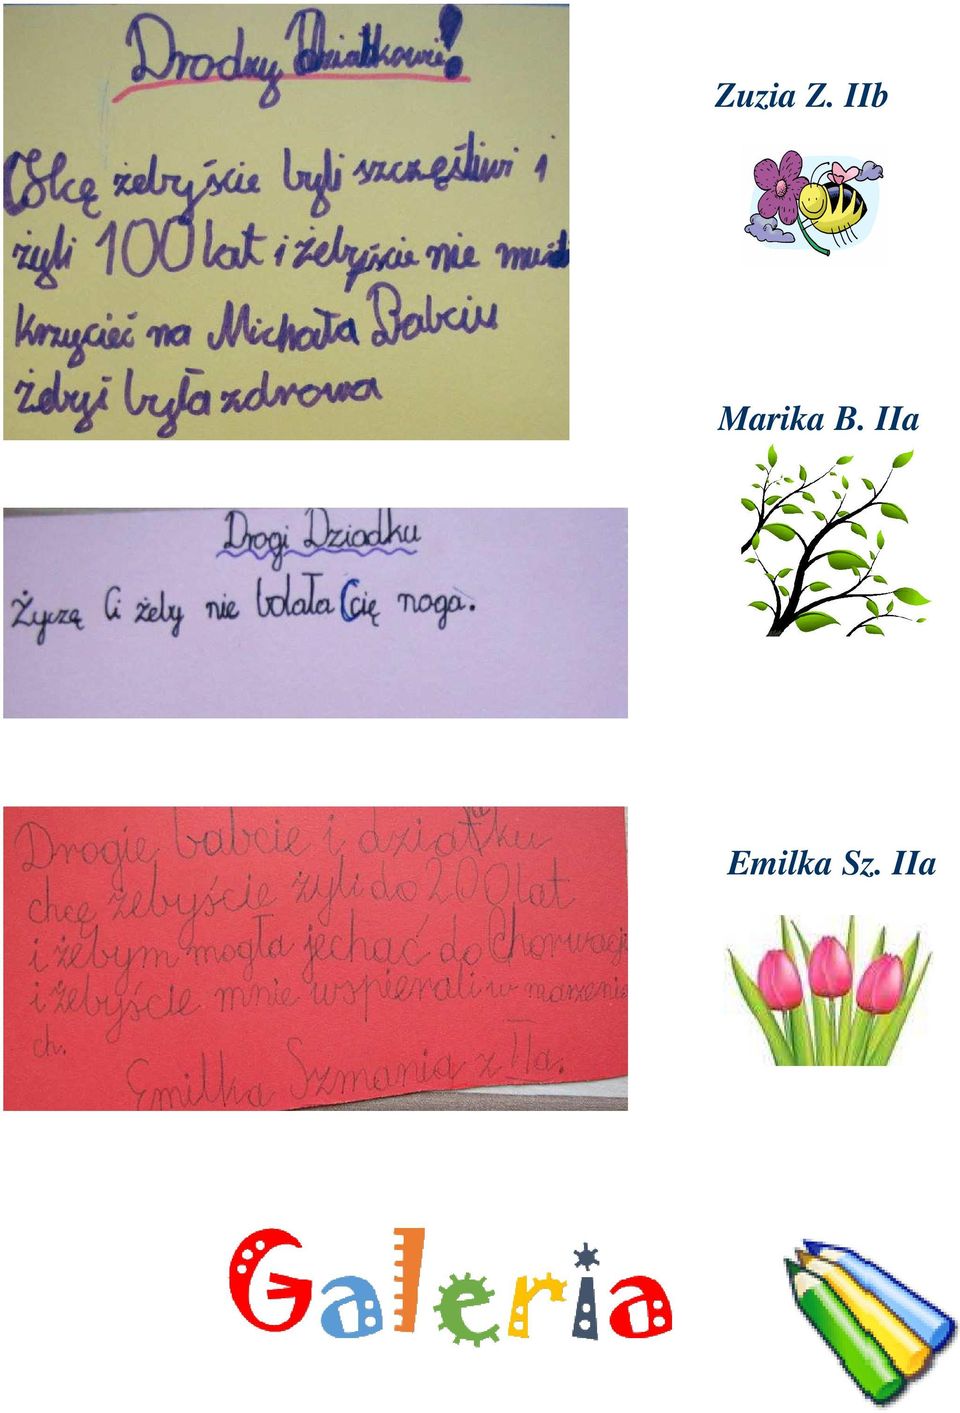 Drodzy Dziatkowi!
Zuzia Z. IIb
Chcę żebyście byli szczęśliwi i
żyli 100 lat i żebyście nie
krzycieć na Michała Babciu
żebyś była zdrowa
Marika B. IIa
Drogi Dziadku
Życzę Ci żeby nie bolała Cię noga.
Drogie babcie i dziatku
chcę żebyście żyli do 200 lat
i żebym mogła jechać do Chorwacji
i żebyście mnie wspierali w marzenia
ch.
Emilka Szmania z IIa.
Emilka Sz. IIa
Galeria